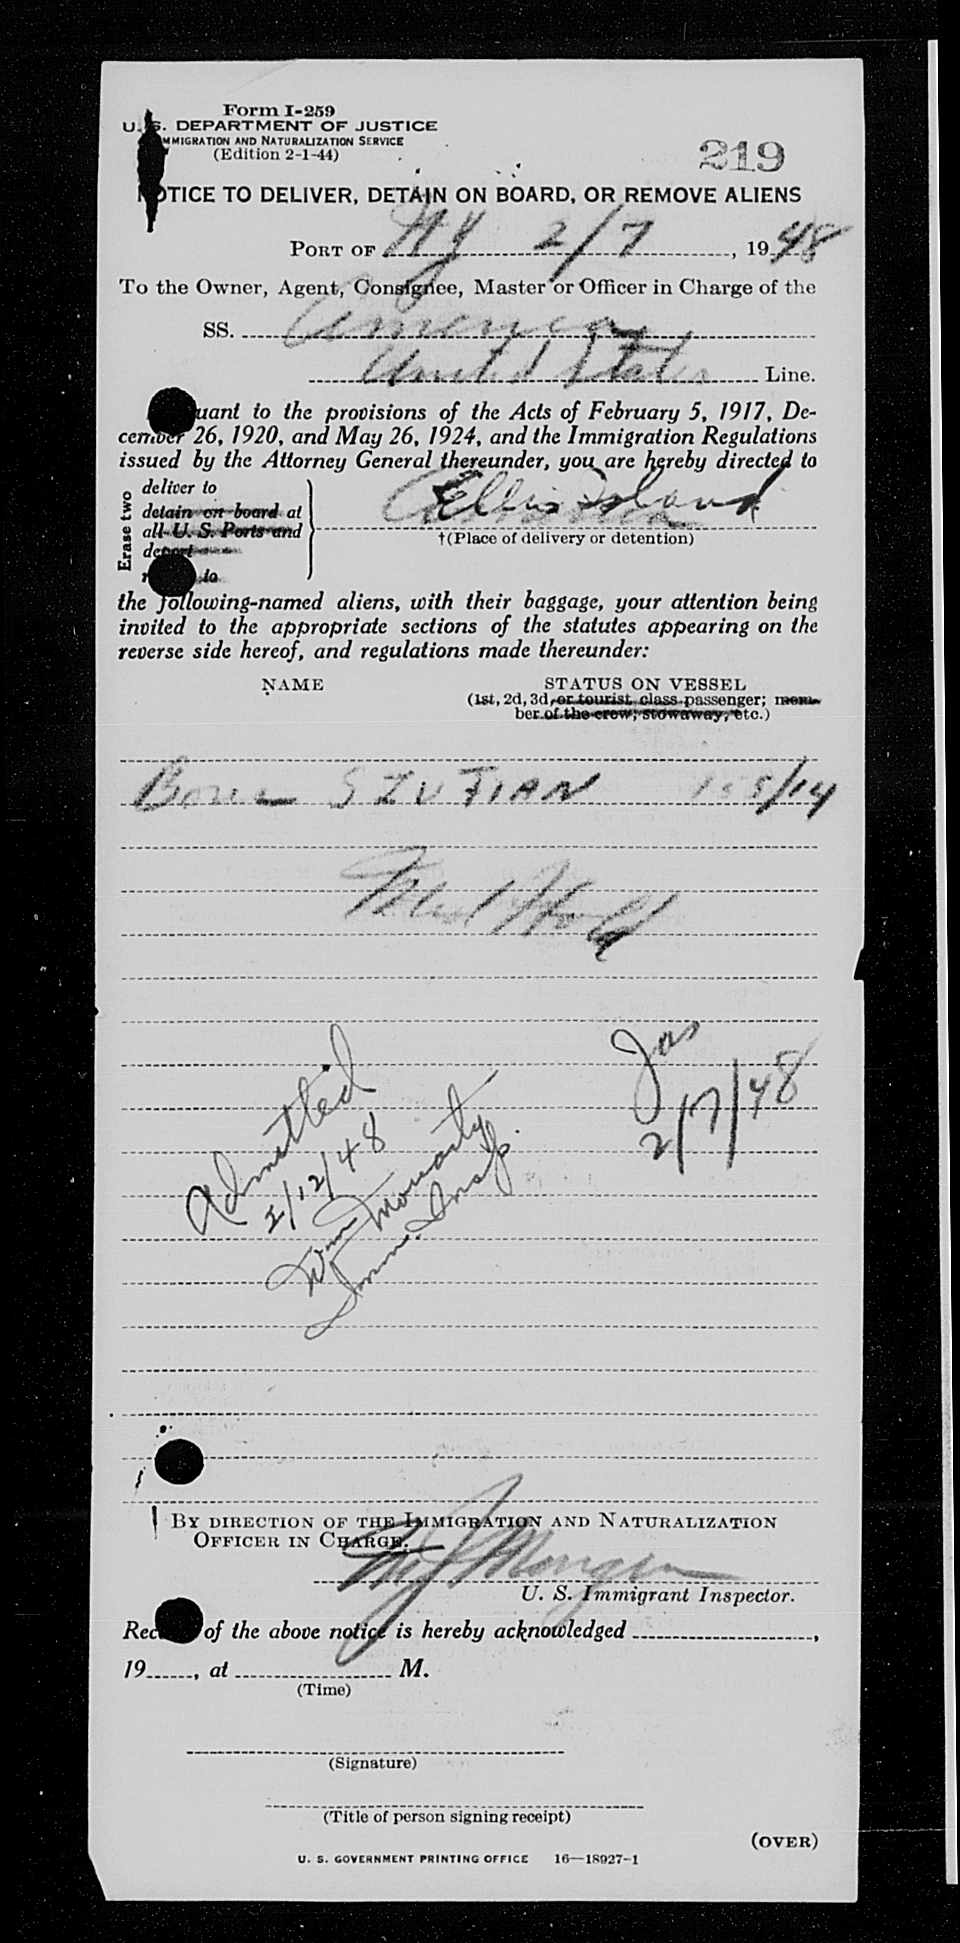 Form I-259
U. S. DEPARTMENT OF JUSTICE
IMMIGRATION AND NATURALIZATION SERVICE
(Edition 2-1-44)
219
NOTICE TO DELIVER, DETAIN ON BOARD, OR REMOVE ALIENS
PORT OF NY 2/7, 1948
To the Owner, Agent, Consignee, Master or Officer in Charge of the
SS. America
United States Line.
uant to the provisions of the Acts of February 5, 1917, De-
cember 26, 1920, and May 26, 1924, and the Immigration Regulations
issued by the Attorney General thereunder, you are hereby directed to
Erase two
deliver to
detain on board at
all U. S. Ports and
deport
to
Ellis Island
†(Place of delivery or detention)
the following-named aliens, with their baggage, your attention being
invited to the appropriate sections of the statutes appearing on the
reverse side hereof, and regulations made thereunder:
NAME STATUS ON VESSEL
(1st, 2d, 3d, or tourist class passenger; mem-
ber of the crew, stowaway, etc.)
SZUTIAN /14
Med Hold
Jas
2/7/48
Admitted
2/12/48
Wm Moriarty
Imm. Insp.
BY DIRECTION OF THE IMMIGRATION AND NATURALIZATION
OFFICER IN CHARGE.
Morgan
U. S. Immigrant Inspector.
of the above notice is hereby acknowledged ,
19 , at M.
(Time)
(Signature)
(Title of person signing receipt)
(OVER)
U. S. GOVERNMENT PRINTING OFFICE 16—18927-1